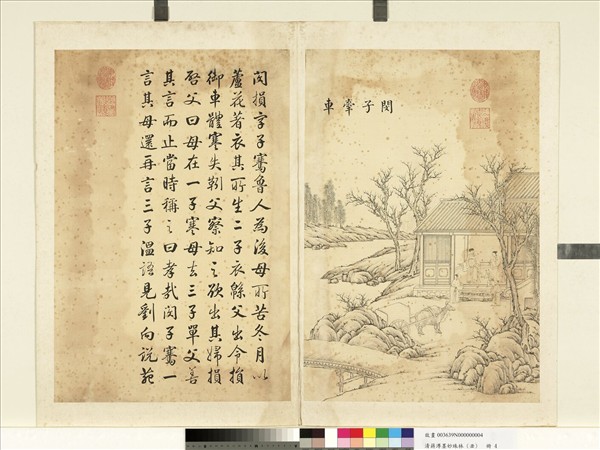 閔子牽車
閔損字子騫魯人為後母所苦冬月以
蘆花著衣其所生二子衣緜父出令損
御車體寒失靷父察知之欲出其婦損
啟父曰母在一子寒母去三子單父善
其言而止當時稱之曰孝哉閔子騫一
言其母還再言三子溫語見劉向說苑
故畫 003639N000000004
清蔣溥墨妙珠林 冊 4